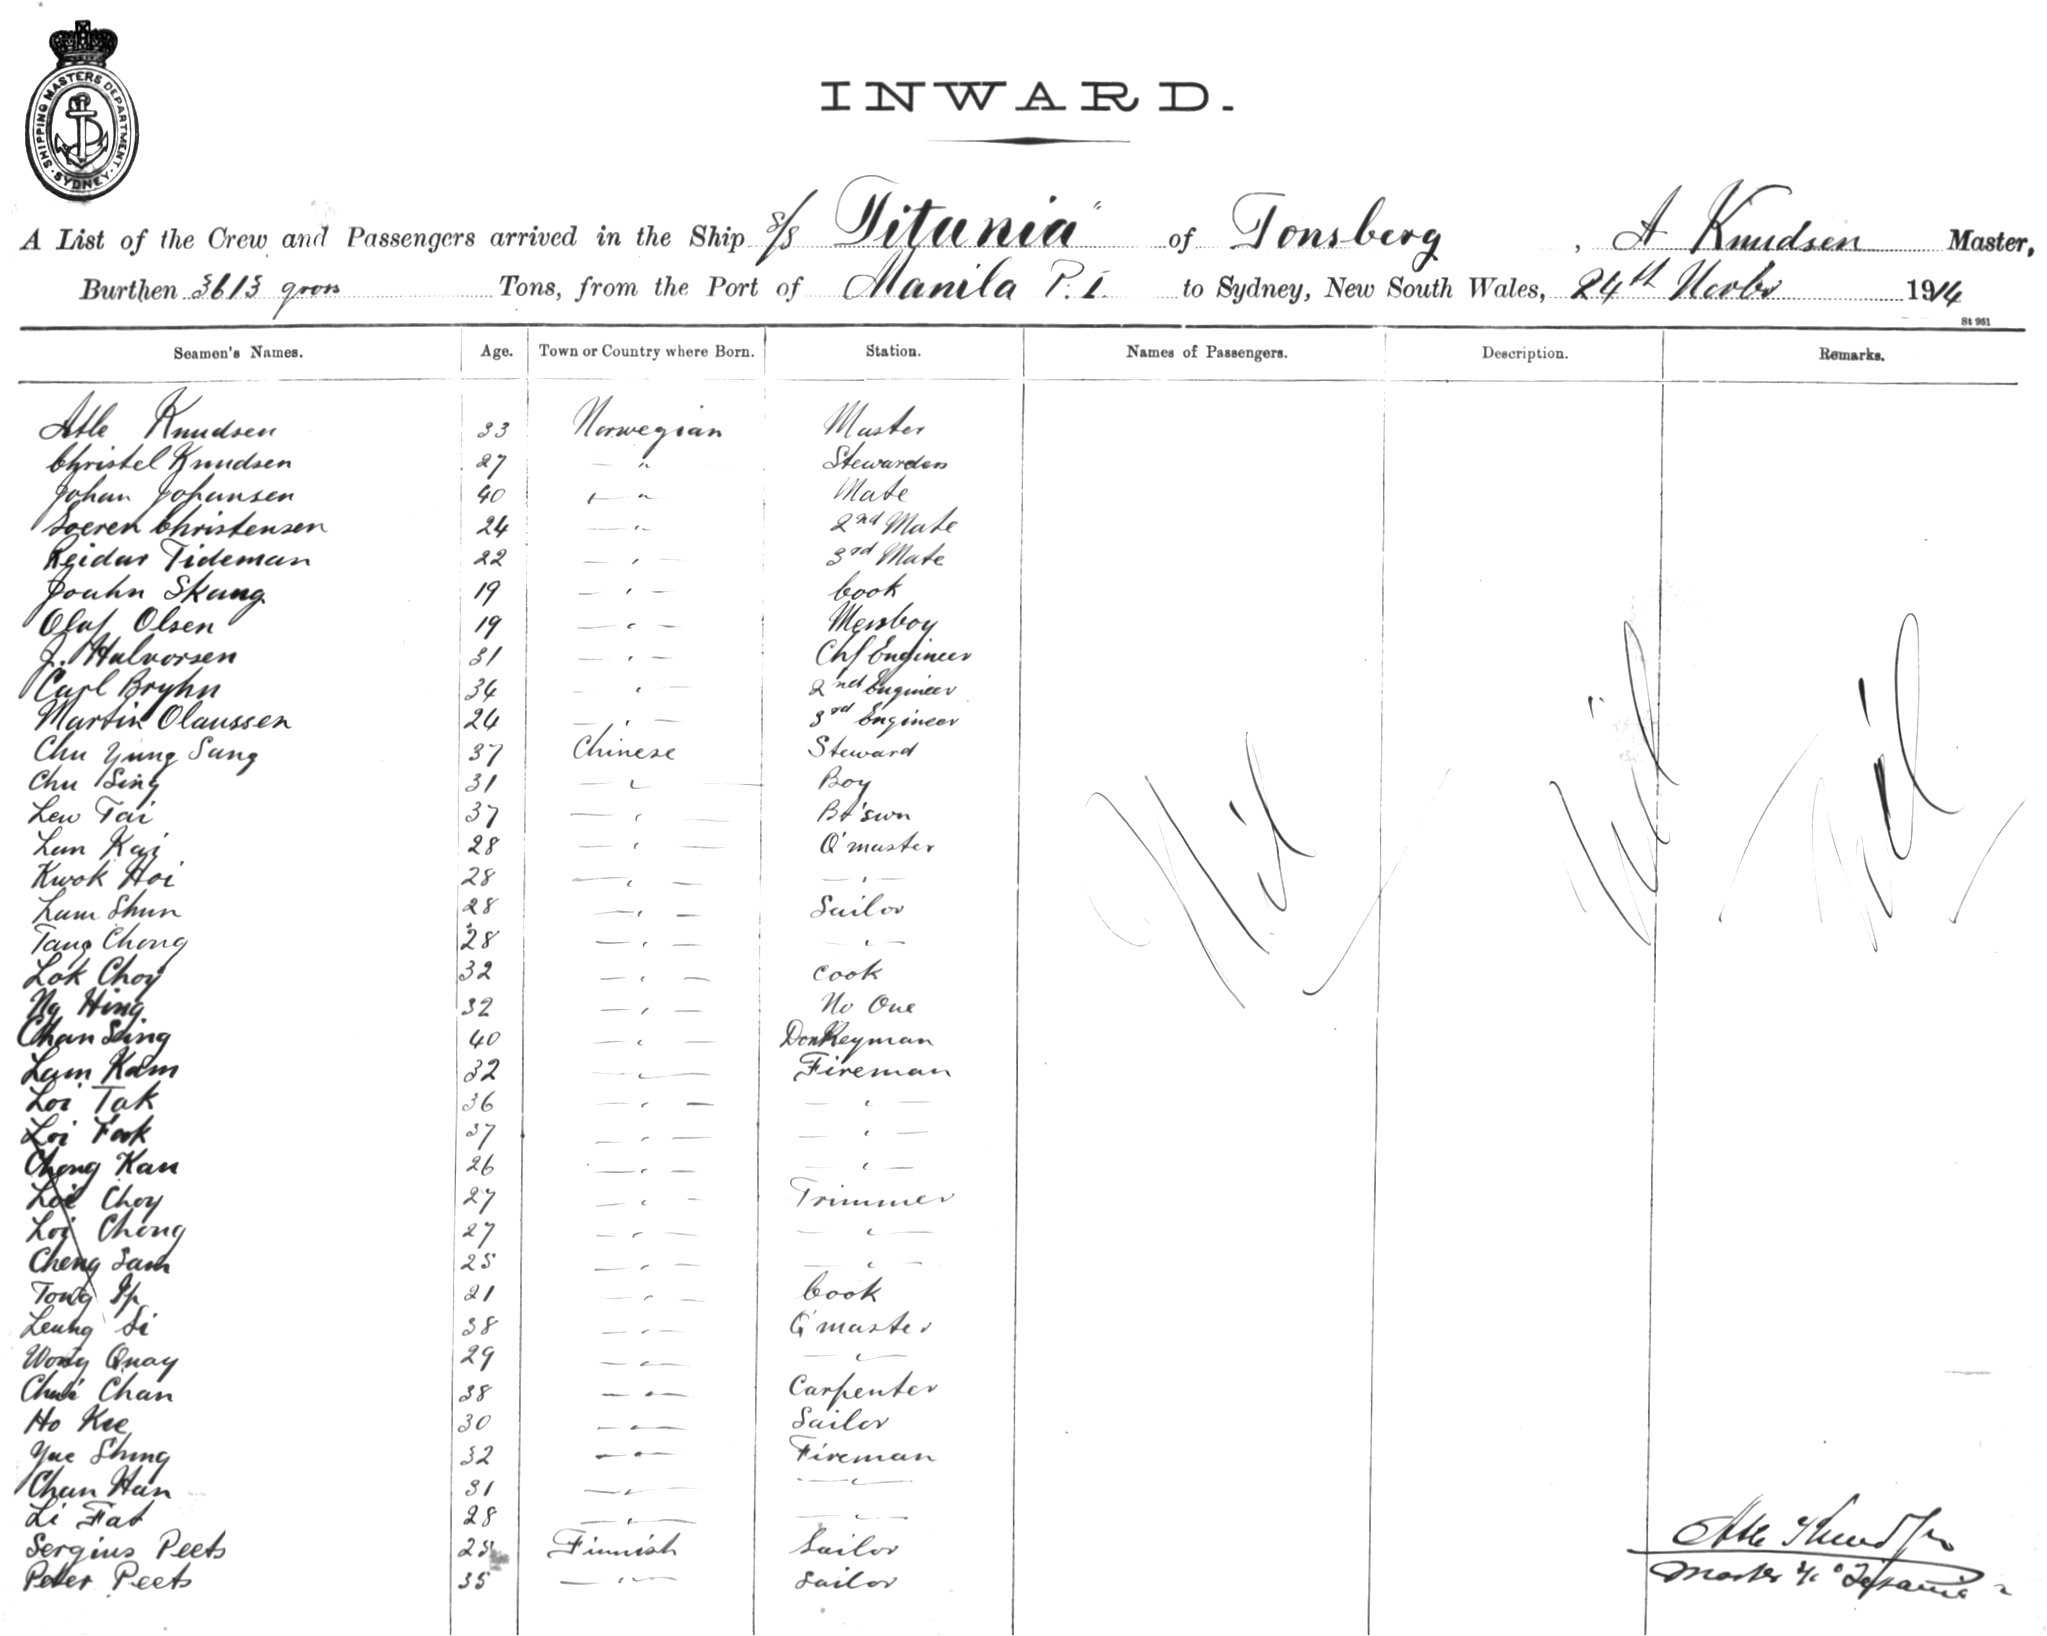 SHIPPING MASTERS DEPARTMENT
SYDNEY
INWARD.
A List of the Crew and Passengers arrived in the Ship s/s "Titania" of Tonsberg, A Knudsen Master,
Burthen 3613 gross Tons, from the Port of Manila P. I. to Sydney, New South Wales, 24th Novbr 1914
St 961
Seamen's Names. Age. Town or Country where Born. Station. Names of Passengers. Description. Remarks.
Atle Knudsen 33 Norwegian Master
Christel Knudsen 27 — " Stewardess
Johan Johansen 40 — " Mate
Soeren Christensen 24 — " 2nd Mate
Reidar Tideman 22 — " — 3rd Mate
Joahn Skaug 19 — " — Cook
Olaf Olsen 19 — " — Messboy
J. Halvorsen 31 — " — Chf Engineer
Carl Bryhn 34 — " — 2nd Engineer
Martin Olaussen 24 — " — 3rd Engineer
Chu Yung Sang 37 Chinese Steward
Chu Sing 31 — " — Boy
Lew Tai 37 — " — Bo'swn
Lam Kai 28 — " — Q'master
Kwok Hoi 28 — " — — " —
Lam Shun 28 — " — Sailor
Tang Chong 28 — " — — " —
Lok Choy 32 — " — Cook
Ng Hing 32 — " — No One
Chan Sing 40 — " — Donkeyman
Lam Kam 32 — " — Fireman
Loi Tak 36 — " — — " —
Loi Fook 37 — " — — " —
Chong Kan 26 — " — — " —
Loi Choy 27 — " — Trimmer
Loi Chong 27 — " — — " —
Cheng Sam 25 — " — — " —
Tong Ip 21 — " — Cook
Leung Si 38 — " — Q'master
Wong Quay 29 — " — — " —
Chui Chan 38 — " — Carpenter
Ho Kee 30 — " — Sailor
Yue Shing 32 — " — Fireman
Chan Han 31 — " — — " —
Li Fat 28 — " — — " —
Sergius Peets 25 Finnish Sailor
Peter Peets 35 — " — Sailor
Nil Nil Nil
Atle Knudsen
Master s/s "Titania"